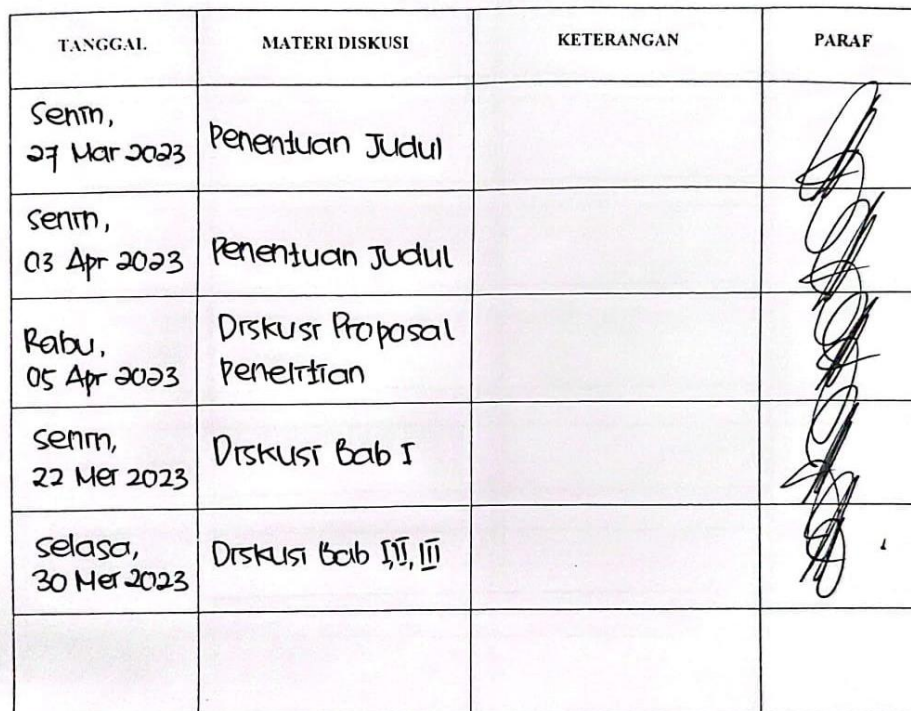 TANGGAL MATERI DISKUSI KETERANGAN PARAF
Senin,
27 Mar 2023 Penentuan Judul
Senin,
03 Apr 2023 Penentuan Judul
Rabu, Diskusi Proposal
05 Apr 2023 Penelitian
Senin,
22 Mei 2023 Diskusi Bab I
Selasa,
30 Mei 2023 Diskusi Bab I, II, III